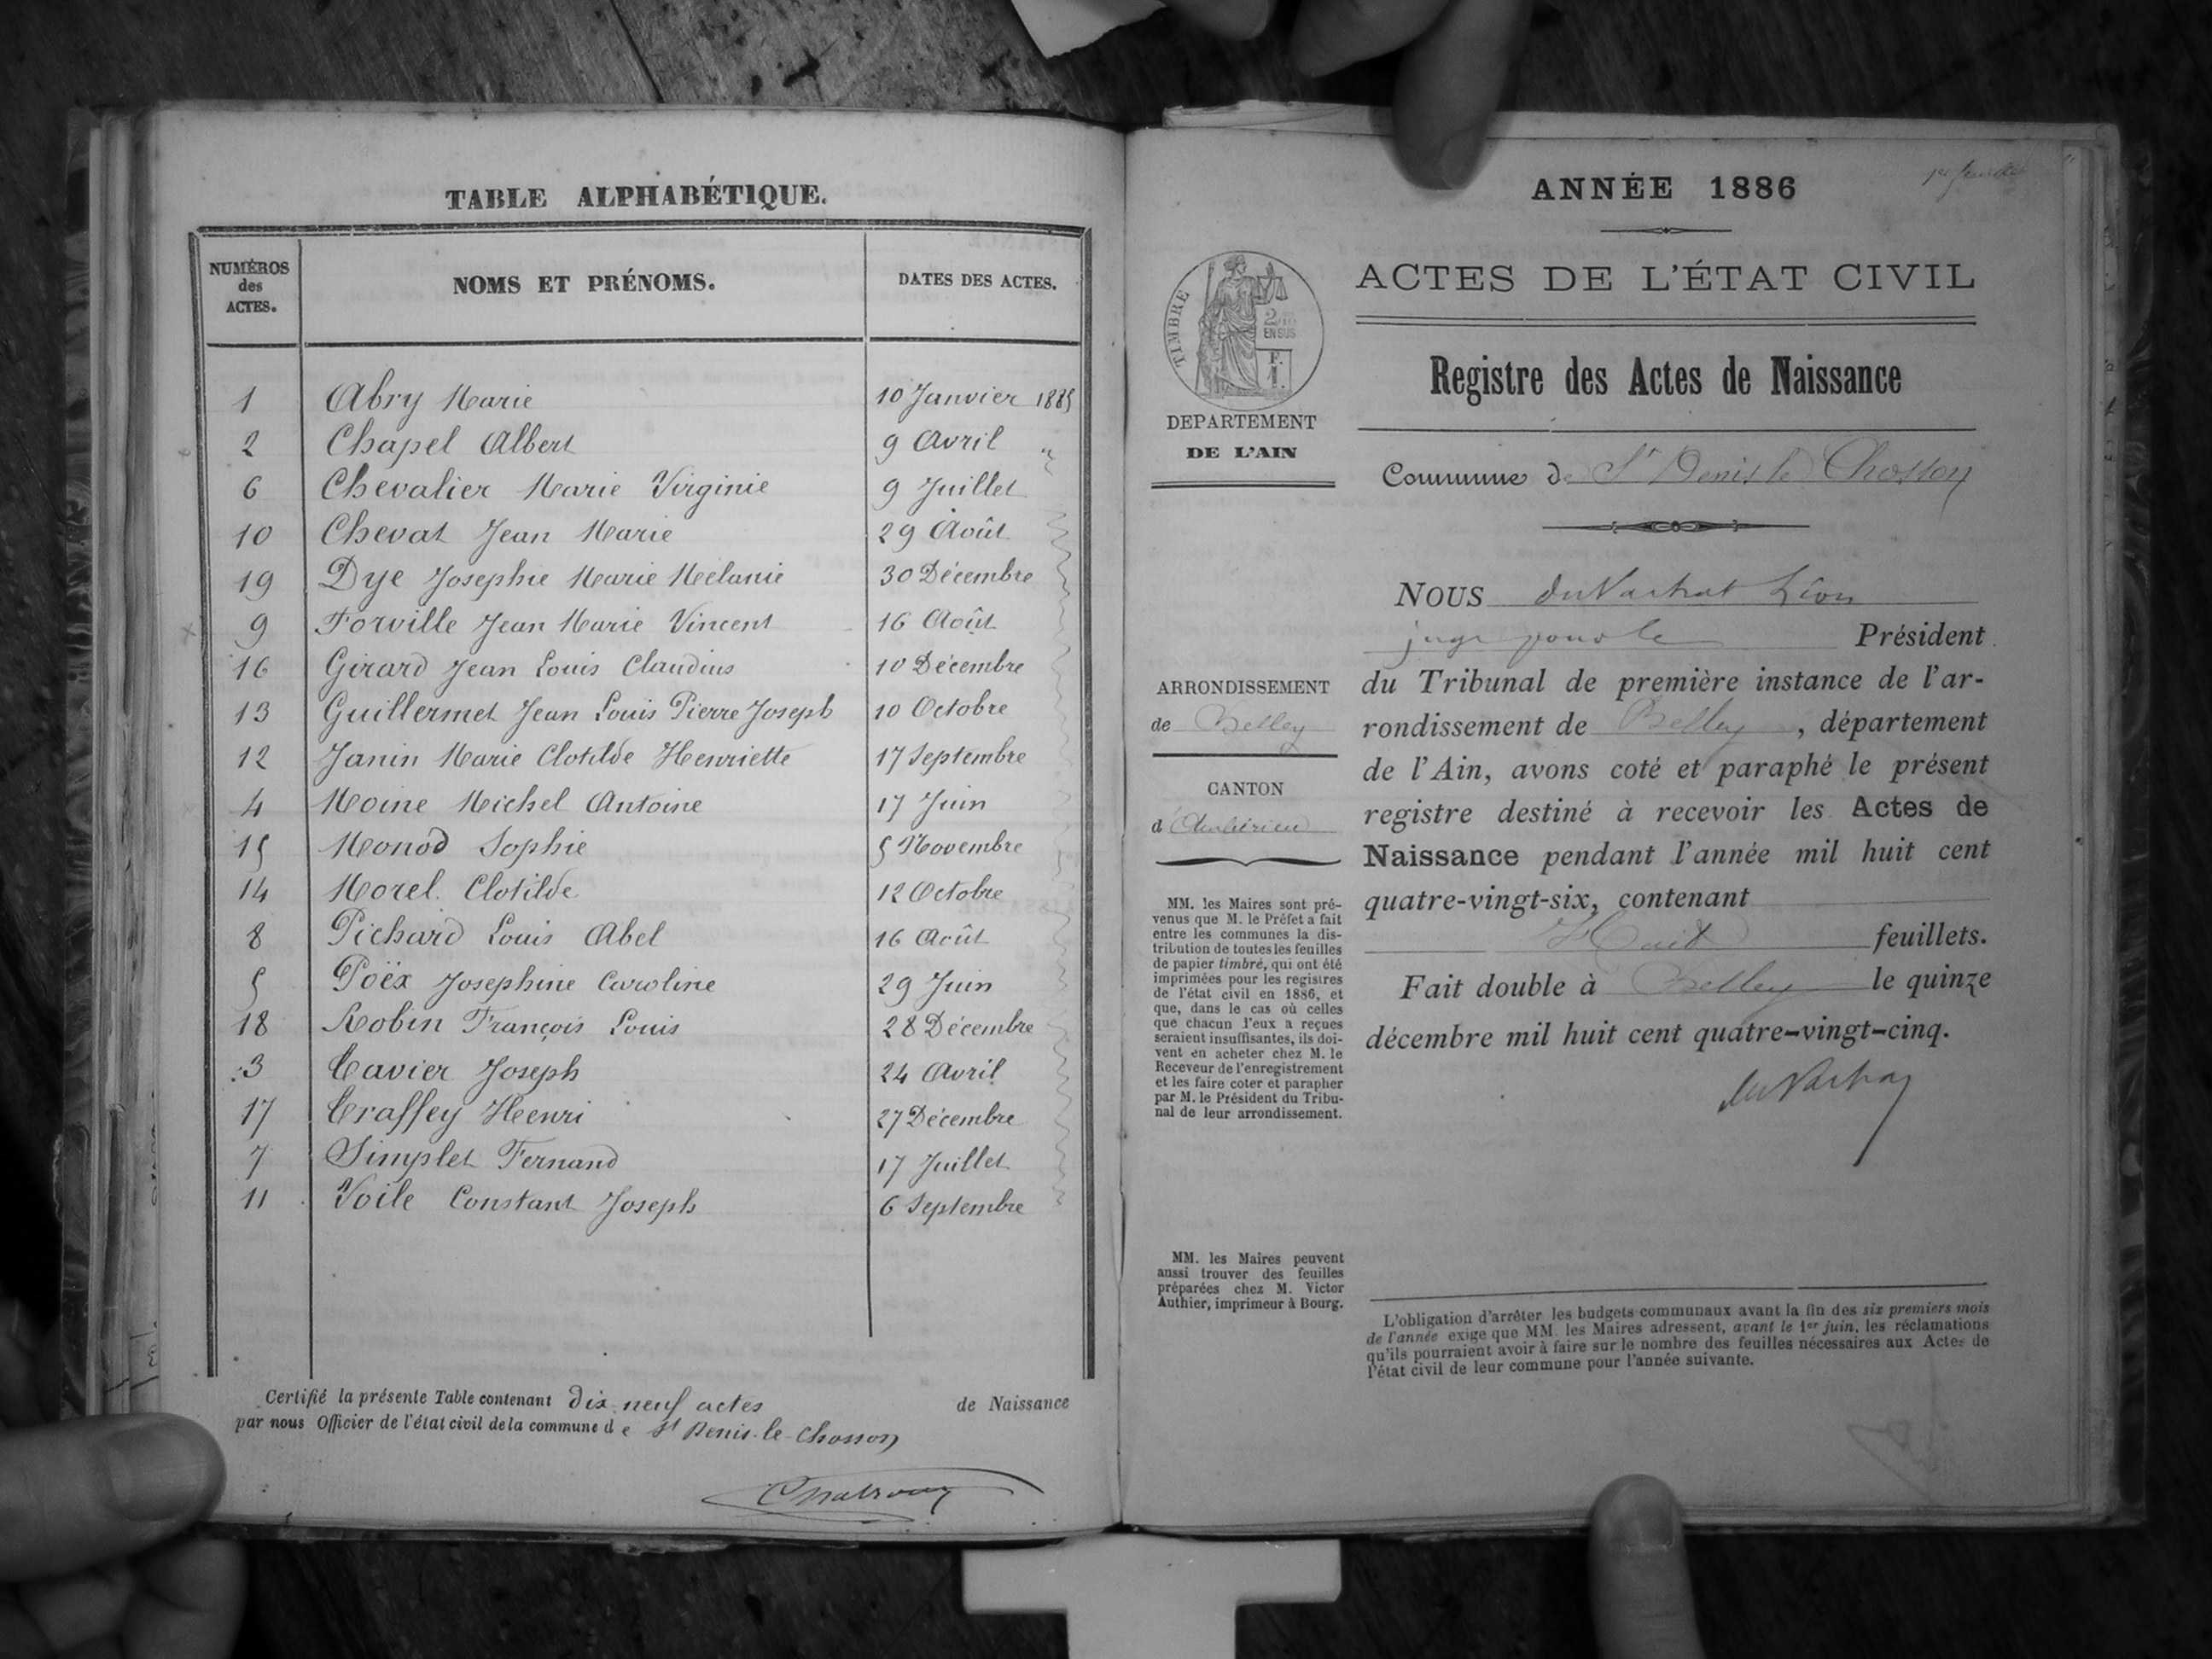 TABLE ALPHABÉTIQUE.
NUMÉROS des ACTES. NOMS ET PRÉNOMS. DATES DES ACTES.
1 Abry Marie 10 Janvier 1885
2 Chapel Albert 9 Avril "
6 Chevalier Marie Virginie 9 Juillet
10 Chevat Jean Marie 29 Août
19 Dye Josephe Marie Mélanie 30 Décembre
9 Forville Jean Marie Vincent 16 Août
16 Girard Jean Louis Claudius 10 Décembre
13 Guillermet Jean Louis Pierre Joseph 10 Octobre
12 Janin Marie Clotilde Henriette 17 Septembre
4 Moine Michel Antoine 17 Juin
15 Monod Sophie 5 Novembre
14 Morel Clotilde 12 Octobre
8 Pichard Louis Abel 16 Août
5 Poëx Josephine Caroline 29 Juin
18 Robin François Louis 28 Décembre
3 Tavier Joseph 24 Avril
17 Traffey Henri 27 Décembre
7 Simplet Fernand 17 Juillet
11 Voile Constant Joseph 6 Septembre
Certifié la présente Table contenant dix neuf actes de Naissance
par nous Officier de l'état civil de la commune de St Denis-le-Chosson
ANNÉE 1886
ACTES DE L'ÉTAT CIVIL
TIMBRE
2/10
EN SUS
F.
1.
DEPARTEMENT
DE L'AIN
Registre des Actes de Naissance
Commune de St Denis le Chosson
NOUS du Vachat Léon
juge pour le Président
du Tribunal de première instance de l'ar-
rondissement de Belley, département
de l'Ain, avons coté et paraphé le présent
registre destiné à recevoir les Actes de
Naissance pendant l'année mil huit cent
quatre-vingt-six, contenant
Huit feuillets.
Fait double à Belley le quinze
décembre mil huit cent quatre-vingt-cinq.
ARRONDISSEMENT
de Belley
CANTON
d'Ambérieu
MM. les Maires sont pré-
venus que M. le Préfet a fait
entre les communes la dis-
tribution de toutes les feuilles
de papier timbré, qui ont été
imprimées pour les registres
de l'état civil en 1886, et
que, dans le cas où celles
que chacun d'eux a reçues
seraient insuffisantes, ils doi-
vent en acheter chez M. le
Receveur de l'enregistrement
et les faire coter et parapher
par M. le Président du Tribu-
nal de leur arrondissement.
MM. les Maires peuvent
aussi trouver des feuilles
préparées chez M. Victor
Authier, imprimeur à Bourg.
L'obligation d'arrêter les budgets communaux avant la fin des six premiers mois
de l'année exige que MM. les Maires adressent, avant le 1er juin, les réclamations
qu'ils pourraient avoir à faire sur le nombre des feuilles nécessaires aux Actes de
l'état civil de leur commune pour l'année suivante.